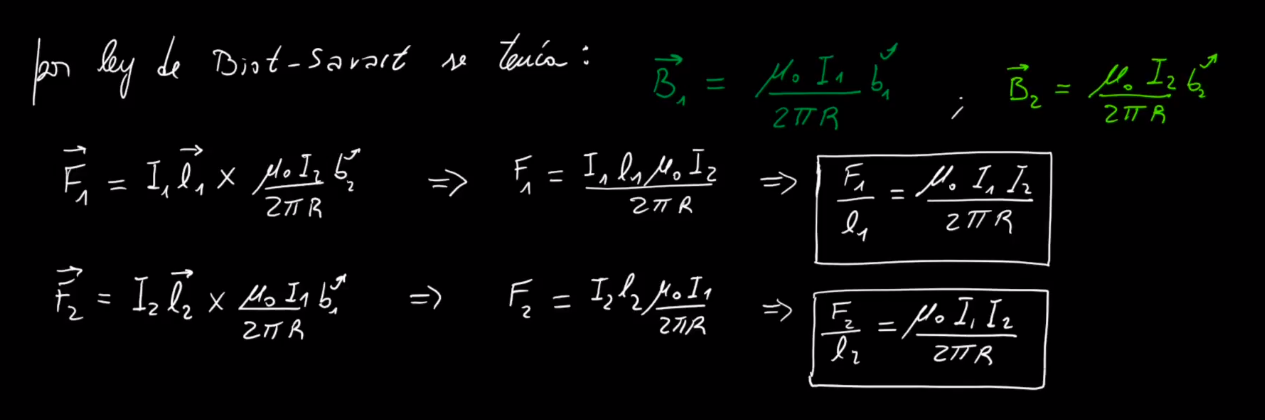 por ley de Biot-Savart se tenía: $\vec{B}_1 = \frac{\mu_0 I_1}{2\pi R} \vec{b}_1$ ; $\vec{B}_2 = \frac{\mu_0 I_2}{2\pi R} \vec{b}_2$
$\vec{F}_1 = I_1 \vec{l}_1 \times \frac{\mu_0 I_2}{2\pi R} \vec{b}_2 \Rightarrow F_1 = \frac{I_1 l_1 \mu_0 I_2}{2\pi R} \Rightarrow \frac{F_1}{l_1} = \frac{\mu_0 I_1 I_2}{2\pi R}$
$\vec{F}_2 = I_2 \vec{l}_2 \times \frac{\mu_0 I_1}{2\pi R} \vec{b}_1 \Rightarrow F_2 = I_2 l_2 \frac{\mu_0 I_1}{2\pi R} \Rightarrow \frac{F_2}{l_2} = \frac{\mu_0 I_1 I_2}{2\pi R}$